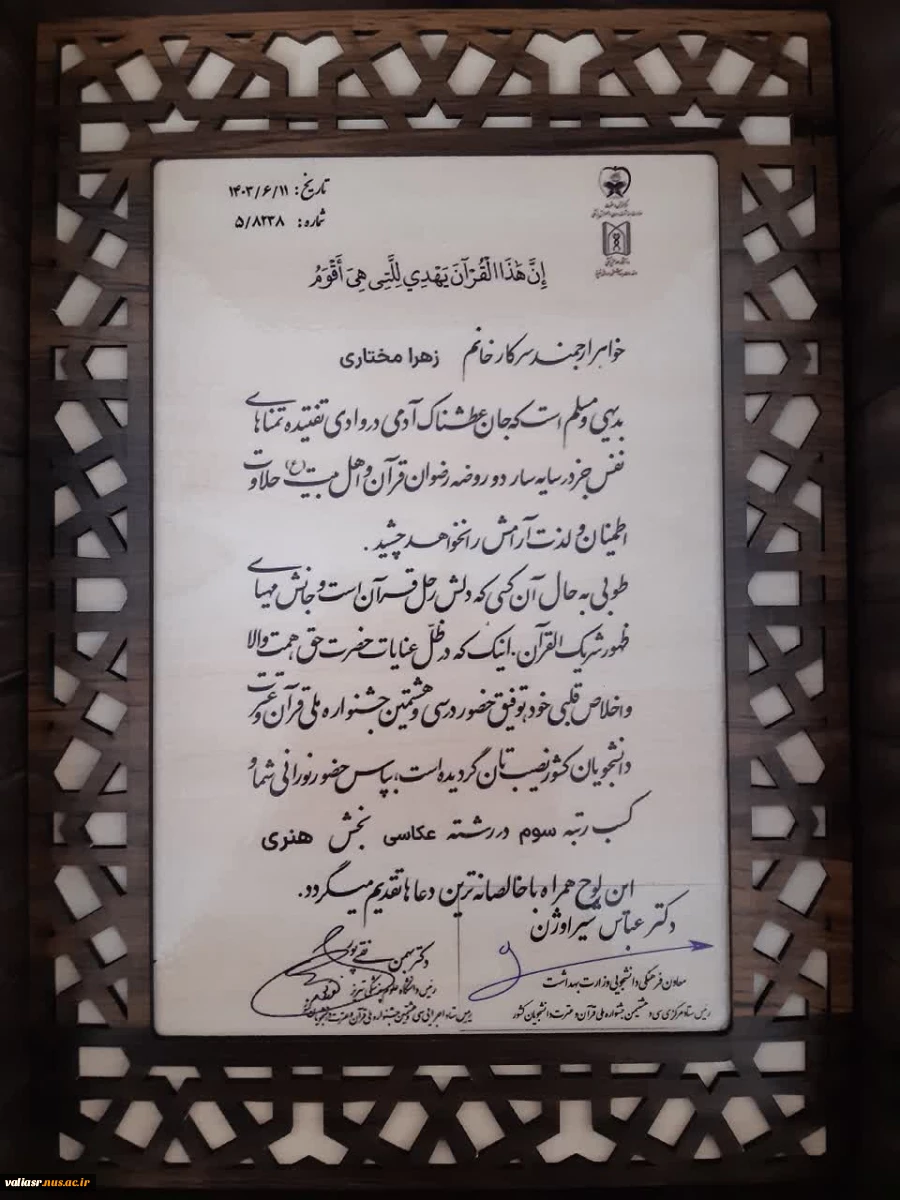 تاریخ: ۱۴۰۳/۶/۱۱
شماره: ۵/۸۲۳۸
إِنَّ هَٰذَا الْقُرْآنَ يَهْدِي لِلَّتِي هِيَ أَقْوَمُ
خواهر ارجمند سرکار خانم زهرا مختاری
بدیهی و مسلم است که جان عطشناک آدمی در وادی تفتیده تمناهای
نفس جز در سایه سار دو روضه رضوان قرآن و اهل بیت (ع) حلاوت
اطمینان و لذت آرامش را نخواهد چشید.
طوبی به حال آن کسی که دلش رحل قرآن است و جانش مهیای
ظهور شریک القرآن. اینک که در ظلّ عنایات حضرت حق، همت والا
و اخلاص قلبی خود، توفیق حضور در سی و هشتمین جشنواره ملی قرآن و عترت
دانشجویان کشور نصیب تان گردیده است، بپاس حضور نورانی شما و
کسب رتبه سوم در رشته عکاسی بخش هنری
این لوح همراه با خالصانه ترین دعاها تقدیم میگردد.
دکتر عباس شیراوژن
معاون فرهنگی دانشجویی وزارت بهداشت
رئیس ستاد مرکزی سی و هشتمین جشنواره ملی قرآن و عترت دانشجویان کشور
دکتر بهمن نقی پور
رئیس دانشگاه علوم پزشکی تبریز
رئیس ستاد اجرائی سی و هشتمین جشنواره ملی قرآن و عترت دانشجویان
valiasr.nus.ac.ir